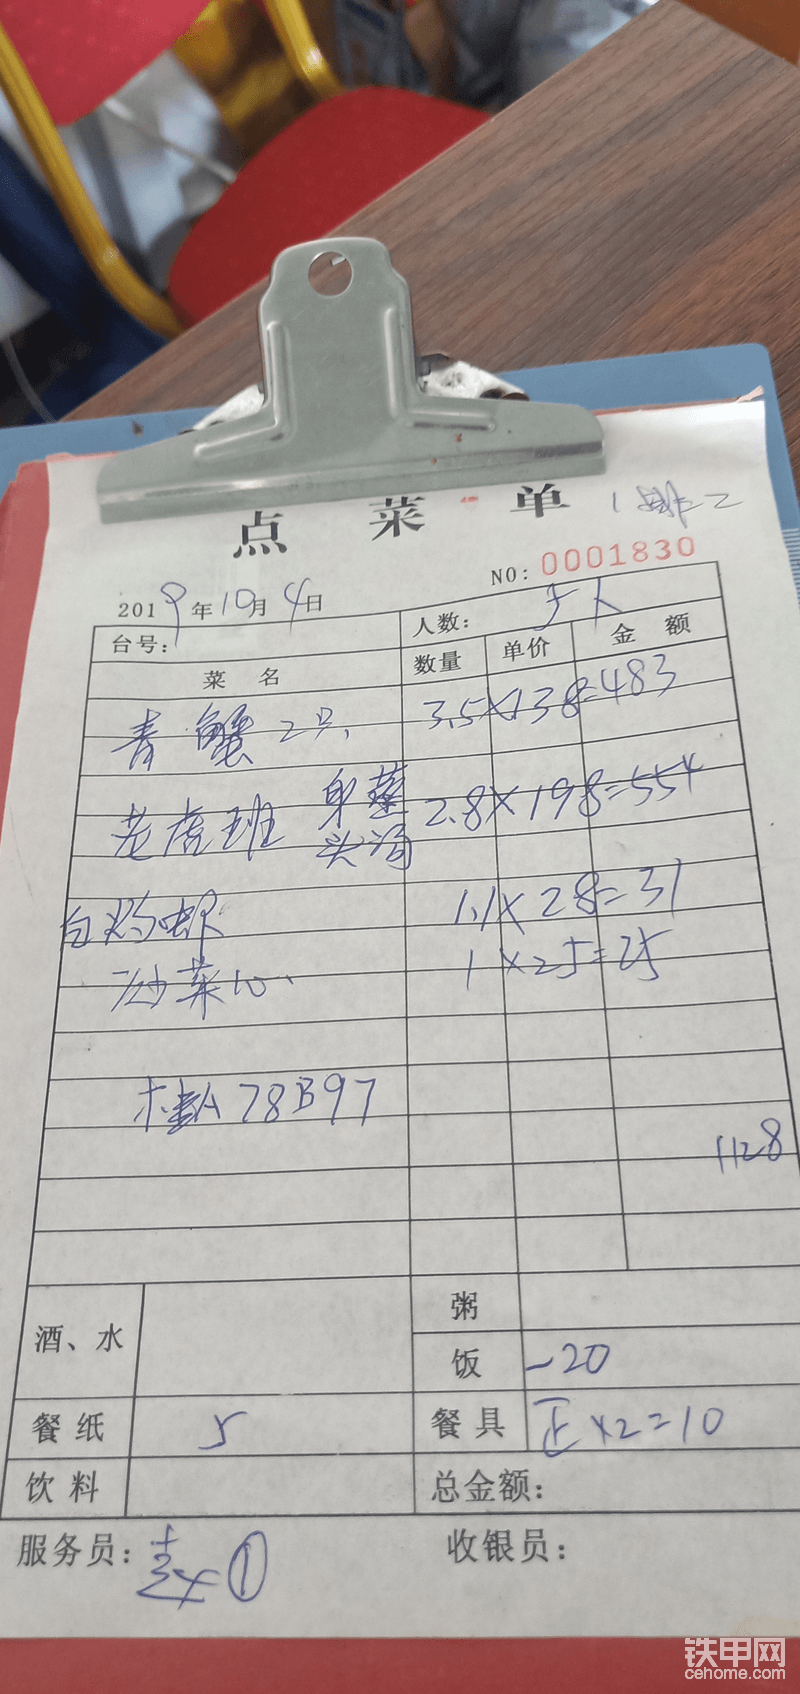 点菜单
NO: 0001830
2019年10月4日
台号: 人数: 5人
菜名 数量 单价 金额
青蟹2只 3.5×138=483
老虎班 2.8×198=554
头汤
白灼虾 1.1×28=31
炒菜心 1×25=25
A78B97
1128
酒、水 粥
饭 -20
餐纸 5 餐具 正×2=10
饮料 总金额:
服务员: ① 收银员:
铁甲网
cehome.com